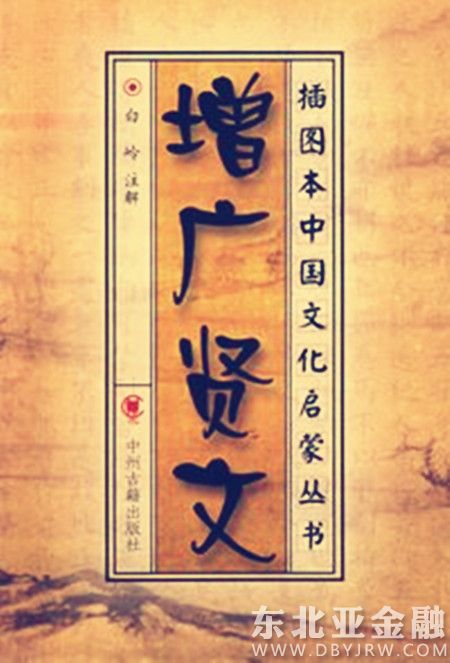 插图本中国文化启蒙丛书
增广贤文
白岭 注解
中州古籍出版社
东北亚金融
WWW.DBYJRW.COM